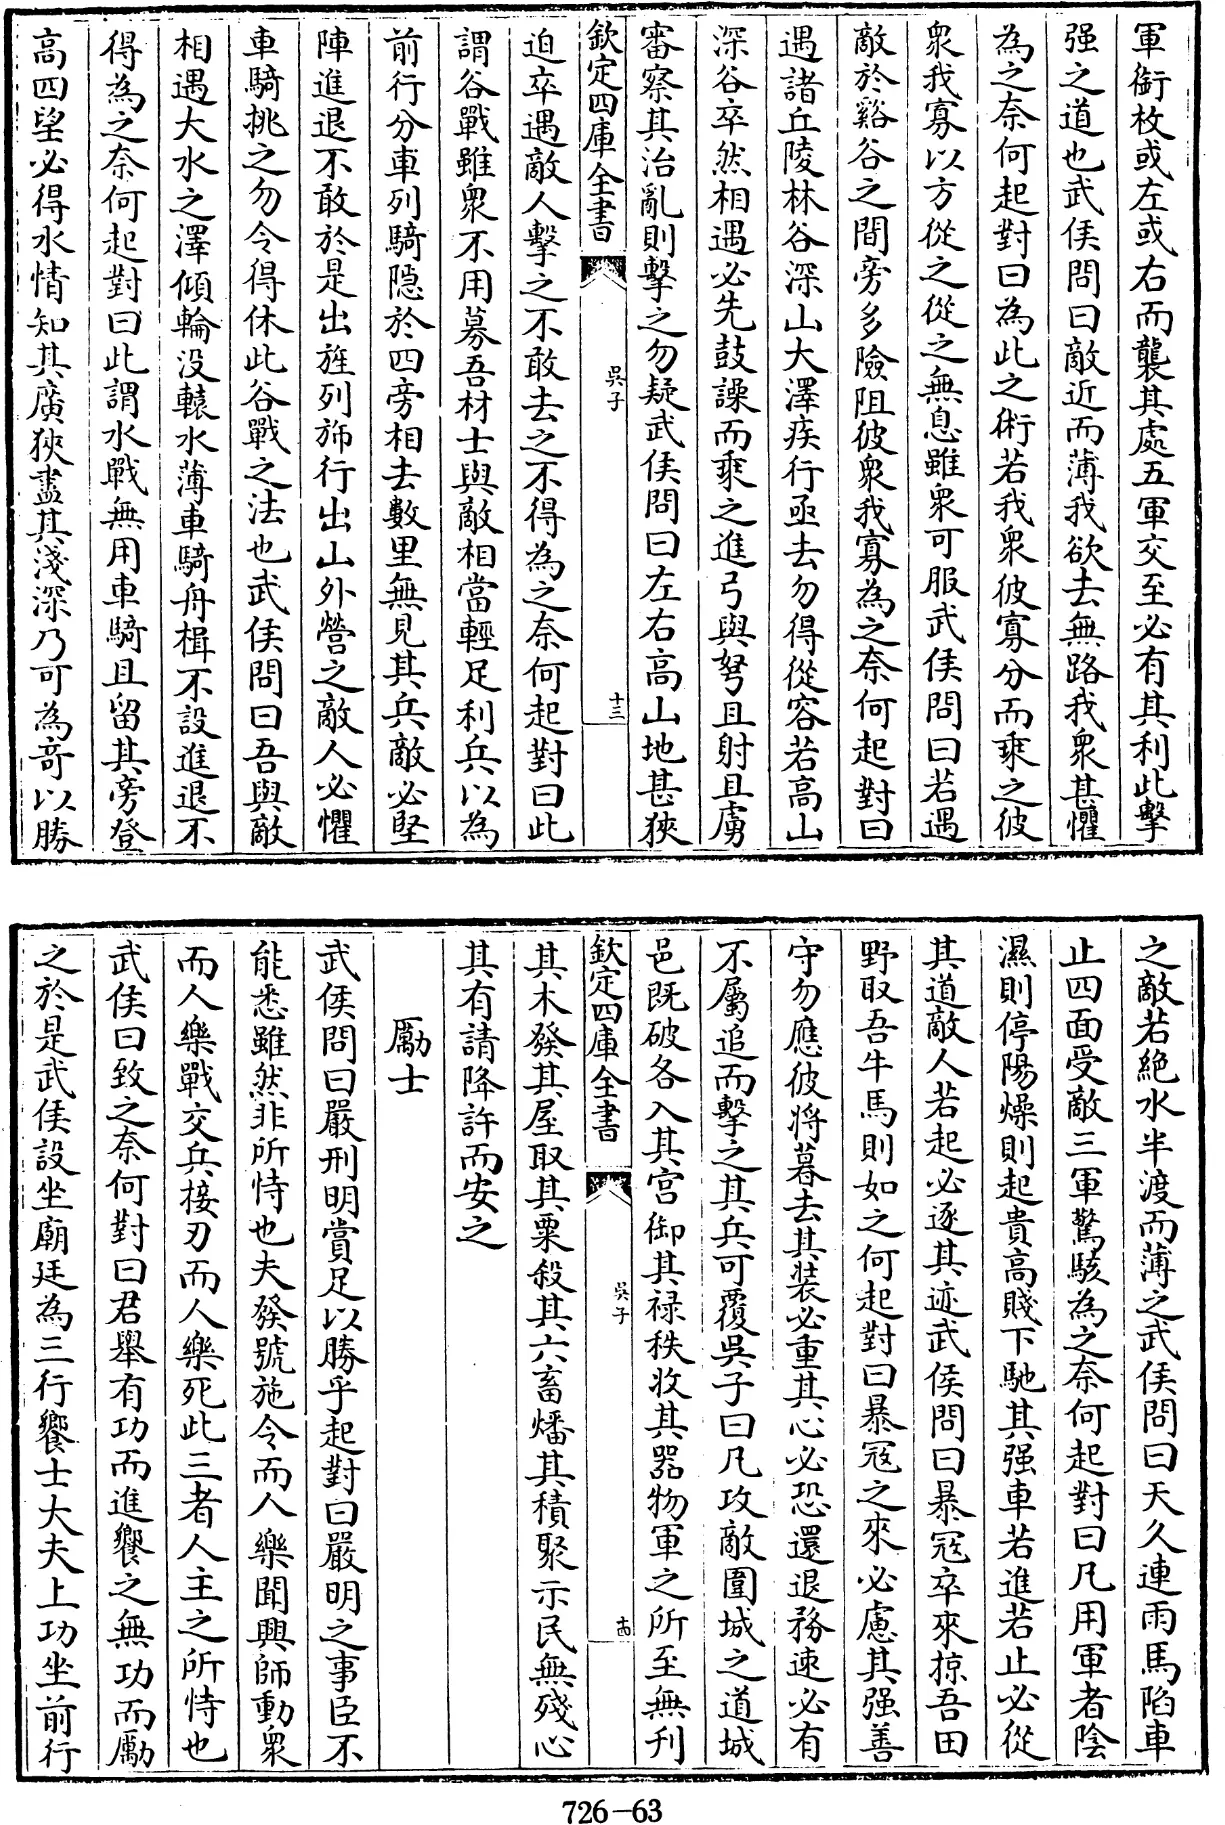 軍銜枚或左或右而襲其處五軍交至必有其利此擊
强之道也武侯問曰敵近而薄我欲去無路我衆甚懼
為之奈何起對曰為此之術若我衆彼寡分而乗之彼
衆我寡以方從之從之無息雖衆可服武侯問曰若遇
敵於谿谷之間旁多險阻彼衆我寡為之奈何起對曰
遇諸丘陵林谷深山大澤疾行亟去勿得從容若高山
深谷卒然相遇必先鼓譟而乗之進弓與弩且射且虜
審察其治亂則擊之勿疑武侯問曰左右高山地甚狹
欽定四庫全書
吳子
十三
迫卒遇敵人擊之不敢去之不得為之奈何起對曰此
謂谷戰雖衆不用募吾材士與敵相當輕足利兵以為
前行分車列騎隠於四旁相去數里無見其兵敵必堅
陣進退不敢於是出旌列斾行出山外營之敵人必懼
車騎挑之勿令得休此谷戰之法也武侯問曰吾與敵
相遇大水之澤傾輪没轅水薄車騎舟楫不設進退不
得為之奈何起對曰此謂水戰無用車騎且留其旁登
高四望必得水情知其廣狹盡其淺深乃可為竒以勝
之敵若絶水半渡而薄之武侯問曰天久連雨馬陷車
止四面受敵三軍驚駭為之奈何起對曰凡用軍者陰
濕則停陽燥則起貴高賤下馳其强車若進若止必從
其道敵人若起必逐其迹武侯問曰暴寇卒來掠吾田
野取吾牛馬則如之何起對曰暴寇之來必慮其强善
守勿應彼將暮去其装必重其心必恐還退務速必有
不屬追而擊之其兵可覆吳子曰凡攻敵圍城之道城
邑既破各入其宮御其禄秩收其器物軍之所至無刋
欽定四庫全書
吳子
十四
其木發其屋取其粟殺其六畜燔其積聚示民無殘心
其有請降許而安之
勵士
武侯問曰嚴刑明賞足以勝乎起對曰嚴明之事臣不
能悉雖然非所恃也夫發號施令而人樂聞興師動衆
而人樂戰交兵接刃而人樂死此三者人主之所恃也
武侯曰致之奈何對曰君舉有功而進饗之無功而勵
之於是武侯設坐廟廷為三行饗士大夫上功坐前行
726-63